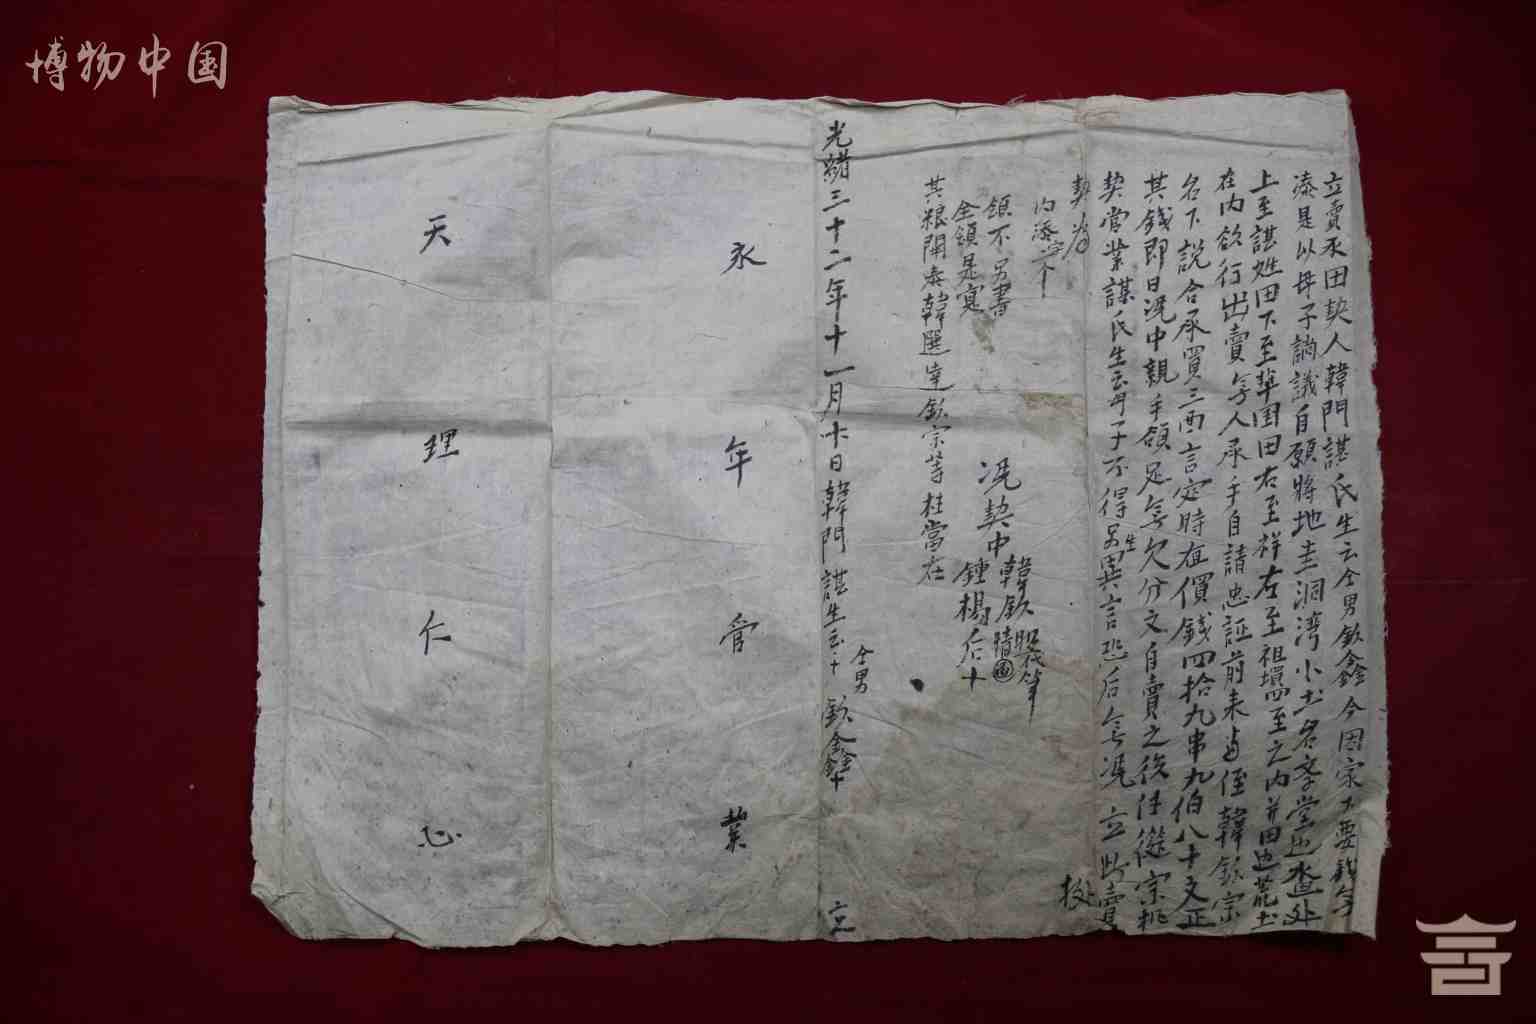 博物中国
立賣承田契人韓門諶氏生云仝男欽鑫今因家下要錢兮
湊是以母子謪議自願將地圭洞湾小土名李堂 外
上至諶姓田下至 田右至 左至祖墳四至之内并田边荒土
在内欲行出賣兮人承手自請忠証前来 侄韓欽宗
名下說合承買三面言定時值價錢四拾九串九伯八十文正
其錢即日凴中親手領足兮欠分文自賣之後任從宗
契管業諶氏生云母子不得另生異言恐后兮凴立此賣
契為
内添 字个
領不另書
全領是寔
其粮開泰韓選達欽宗等柱當在
凴契中
韓欽
鍾楊后十
筆
光緒三十二年十一月十日韓門諶生云十仝男欽鑫 立
永年管業
天理仁心